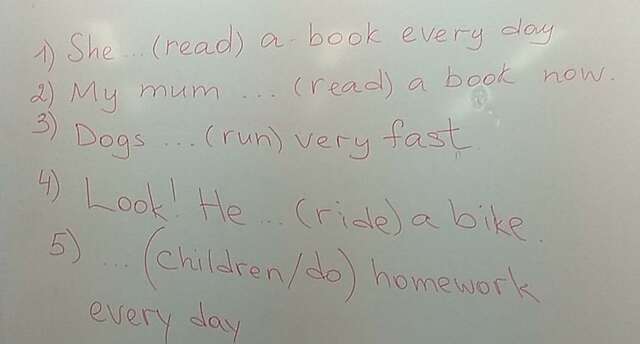 1) She ... (read) a book every day
2) My mum ... (read) a book now.
3) Dogs ... (run) very fast.
4) Look! He ... (ride) a bike.
5) ... (children/do) homework
every day